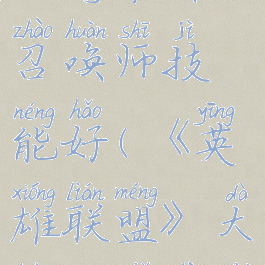 zhào huàn shī jì
召唤师技
néng hǎo yīng
能好(《英
xióng lián méng dà
雄联盟》大